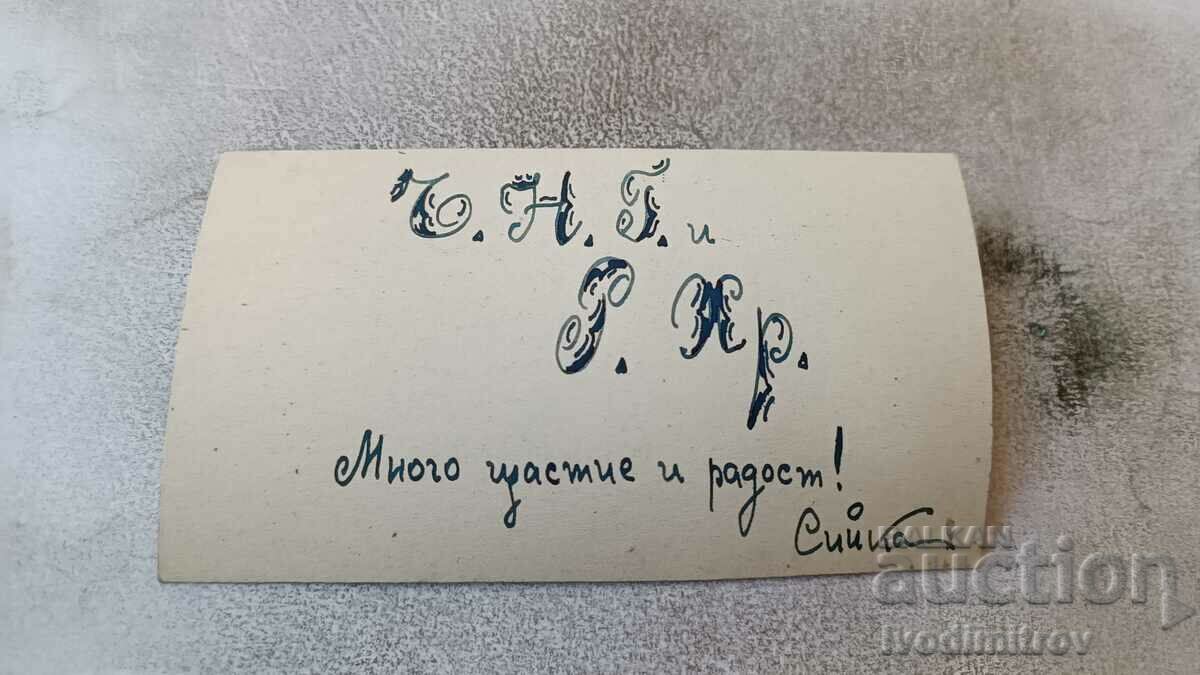 Ч. Н. Г. и
Р. Хр.
Много щастие и радост!
Сийка
BALKAN
auction
ivodimitrov